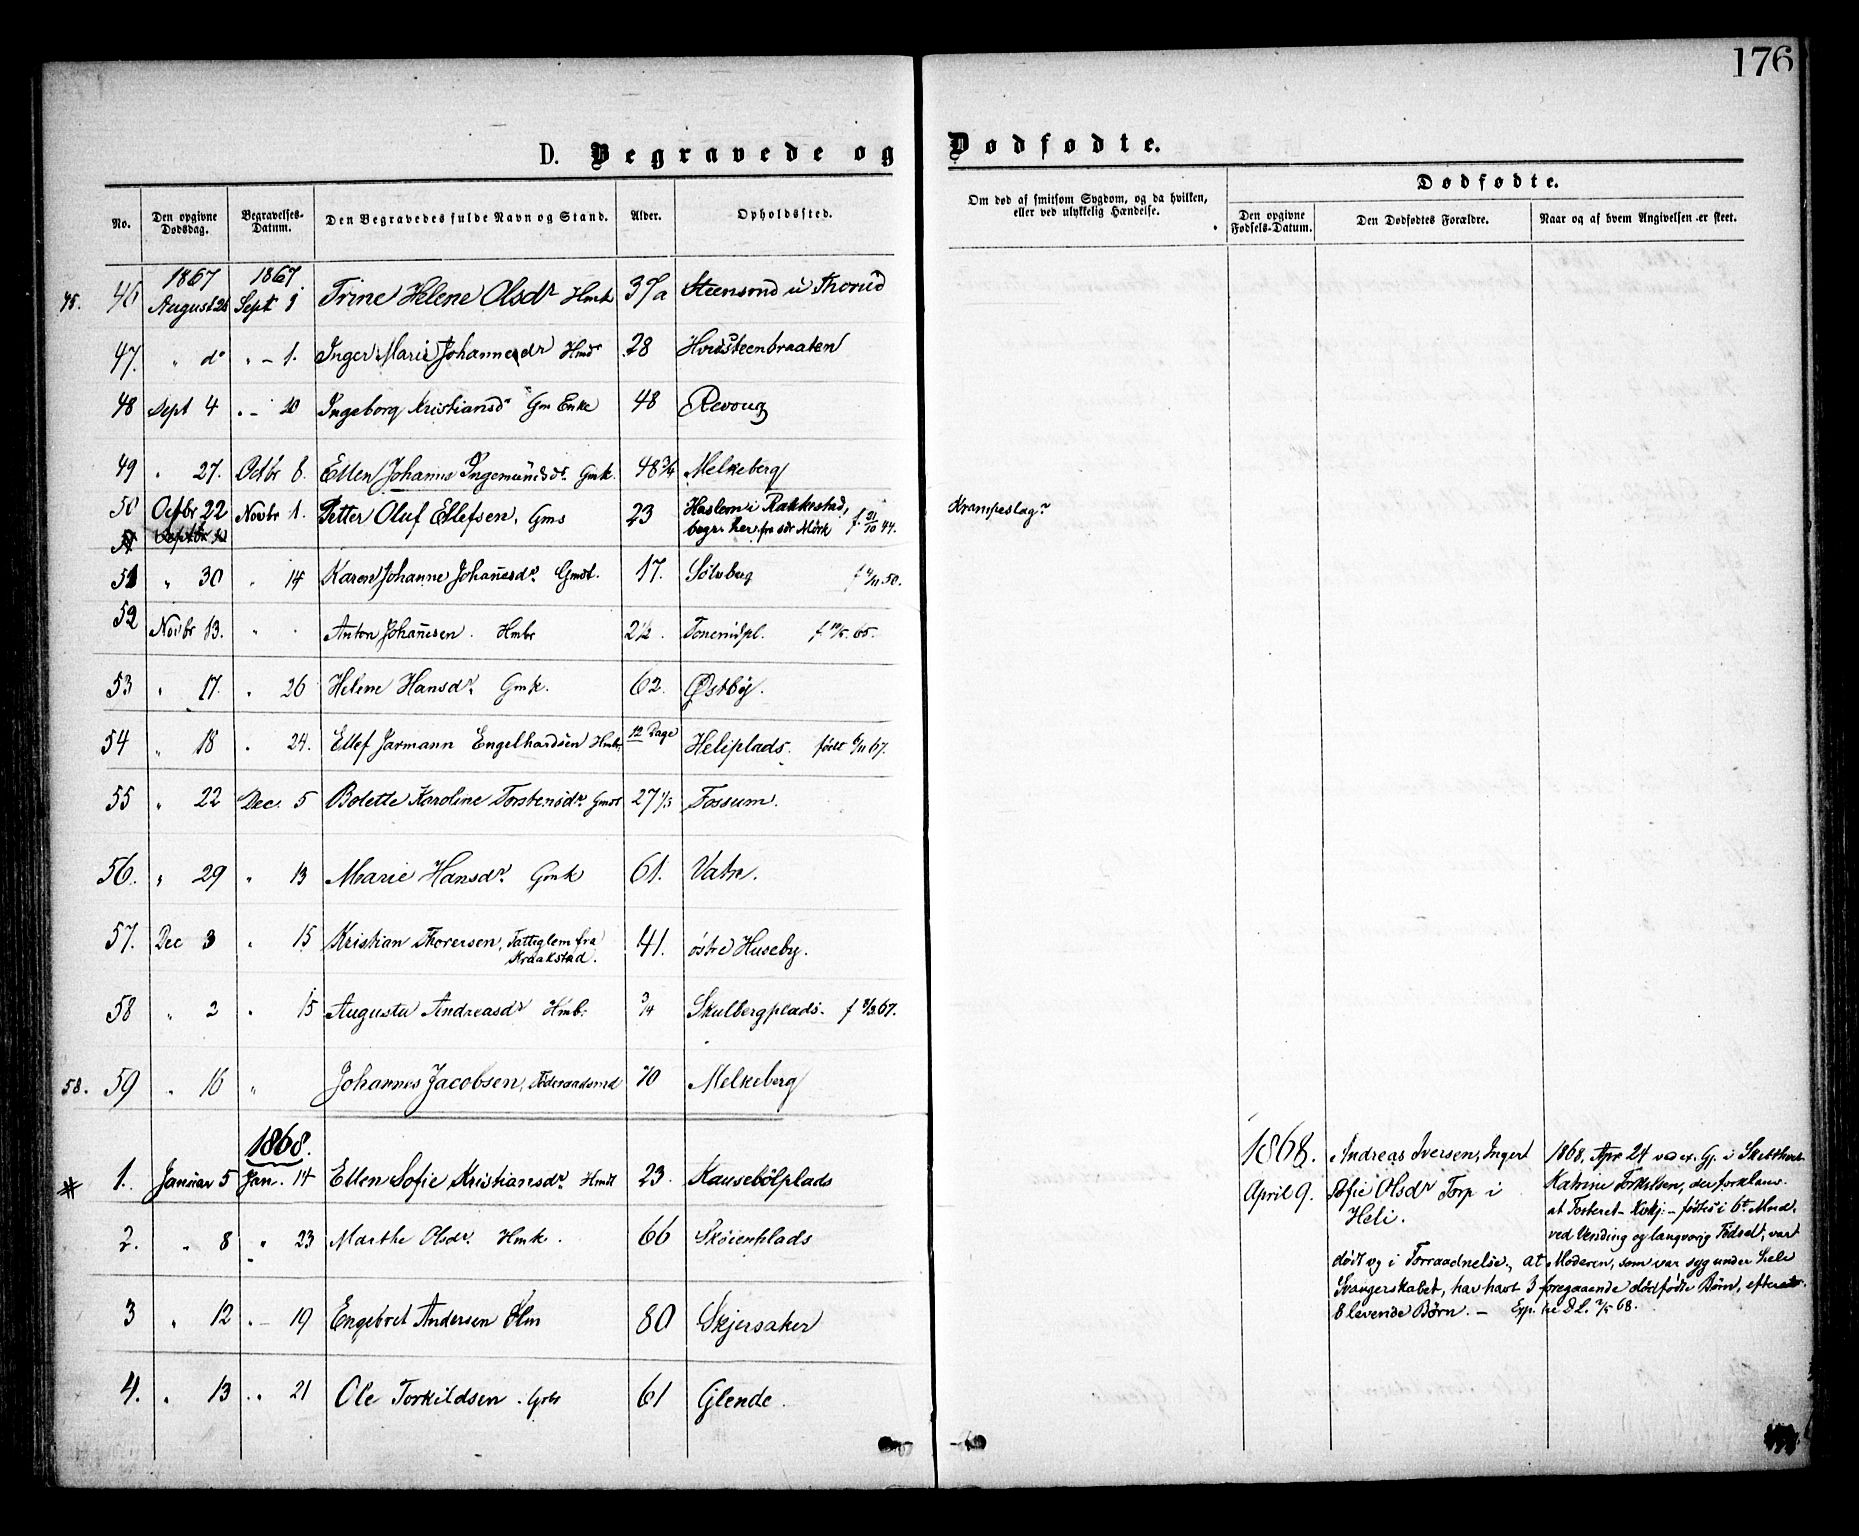 176
D. Begravede og Dødfødte.
No. Den opgivne Dødsdag. Begravelses-Datum. Den Begravedes fulde Navn og Stand. Alder. Opholdssted.
Om død af smitsom Sygdom, og da hvilken, eller ved ulykkelig Hændelse.
Dødfødte.
Den opgivne Fødsels-Datum. Den Dødfødtes Forældre. Naar og af hvem Angivelsen er skeet.
1867 1867
45. 46 August 26 Sept 1 Trine Helene Olsdr Hmk 37 a Steensrud u Thorud
47. " do " - 1. Inger Marie Johannesdr Hmds 28 Hvidsteenbraaten
48 Sept 4 " - 10 Ingeborg Kristiansdr Gm Enke 48 Revoug
49 " 27. Octbr 6. Ellen Johanne Ingemundsdr. Gmk. 48 3/4 Melkeberg
50 Octbr 22 Novbr 1. Petter Oluf Ellefsen. Gms 23 Haslem i Rakkestad,
begr. her fra sdr Mörk f. 31/10 44.
Krampeslagr
51 " 30 " 14 Karen Johanne Johansdr. Gmdt. 17. Sölvberg f 4/11.50.
52 Novbr 13. " " Anton Johansen. Hmbr 2 1/2. Tonerudpl. f 10/5. 65.
53 " 17. " 26 Helene Hansdr. Gmk. 62. Østby.
54 " 18 " 24. Ellef Jarmann Engelhardsen Hmbr. 12 Dage Heliplads. født 6/11 67.
55 " 22 Dec. 5 Bolette Karoline Torstensdr. Gmdt 27 1/3 Fossum.
56. " 29 " 13 Marie Hansdr. Gmk 61. Vatn.
57. Dec 3 " 15 Kristian Thorersen, Fattiglem fra
Kraakstad. 41. östre Huseby.
58 " 2 " 15 Augusta Andreasdr Hmb. 3/4 Skulbergplads. f 3/3.67.
58. 59 " 16 " Johannes Jacobsen, Föderaadsmd 70 Melkeberg
1868.
1. Januar 5 Jan. 14 Ellen Sofie Kristiansdr. Hmdt 23. Kausebölplads
2. " 8 " 23 Marthe Olsdr. Hmk. 66 Sköienplads
3 " 12 " - 19 Engebret Andersen Hm 80 Skjersaker
4. " 13 " " 21 Ole Torkildsen. Gbr 61 Glende.
1868.
April 9.
Andreas Iversen, Ingert
Sofie Olsdr Torp i
Heli.
1868, Apr 24 ved ex. Gj. i
Katrine Torkelsen, der forklarer
at Fosteret - födtes i 6te Maned,
ved Vending og langvarig Födsel, vart
död og i Forraadnelse, at Moderen, som var syg under hele
Svangerskabet, har havt 3 foregaaende dödfödte Börn, efter
8 levende Börn. - 68.